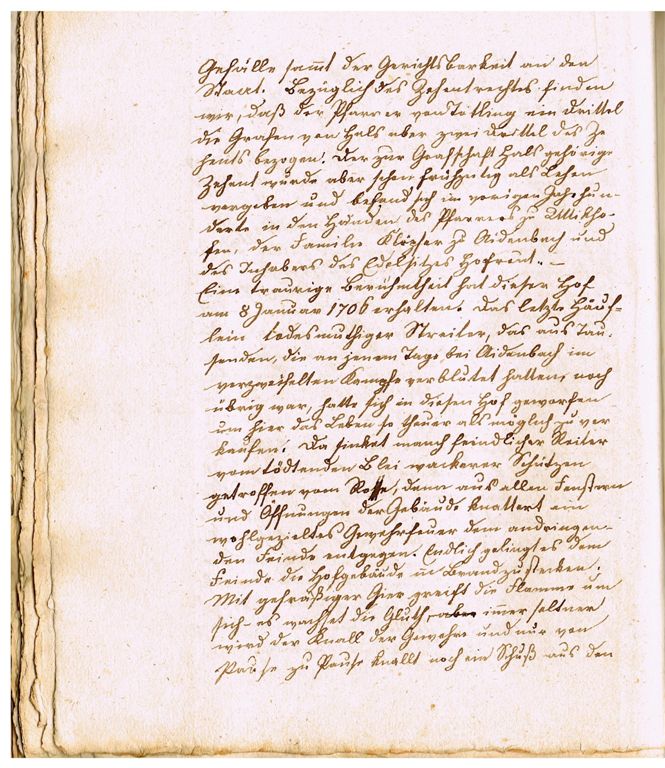 Gefälle sammt der Gerichtsbarkeit an den
Staat. Bezüglich des Zehentrechtes finden
wir, daß der Pfarrer von Titling ein Drittel
die Grafen von Hals aber zwei Drittel des Ze
hents bezogen. Der zur Grafschaft Hals gehörige
Zehent wurde aber schon frühzeitig als Lehen
vergeben und befand sich im vorigen Jahrhun-
derte in den Händen des Pfarrers zu Uttikho-
fen, der Familie zu Aidenbach und
des Inhabers des Edelsitzes
Eine traurige Berühmtheit hat dieser Hof
am 8 Januar 1706 erhalten. Das letzte Häuf-
lein todesmuthiger Streiter, das aus Tau-
senden, die an jenem Tage bei Aidenbach im
verzweifelten Kampfe verblutet hatten, noch
übrig war, hatte sich in diesen Hof geworfen
um hier das Leben so theuer als möglich zu ver
kaufen. Da sinket manch feindlicher Reiter
vom tödtenden Blei wackerer Schützen
getroffen vom Rosse, denn aus allen Fenstern
und Öffnungen der Gebäude knattert ein
wohlgezieltes Gewehrfeuer dem andringen-
den Feinde entgegen. Endlich gelingt es dem
Feinde die Hofgebäude in Brand zu stecken.
Mit gefräßiger Gier greift die Flamme um
sich – es wachset die Gluth, aber immer seltner
wird der Knall der Gewehre und nur von
Pause zu Pause knallt noch ein Schuß aus den